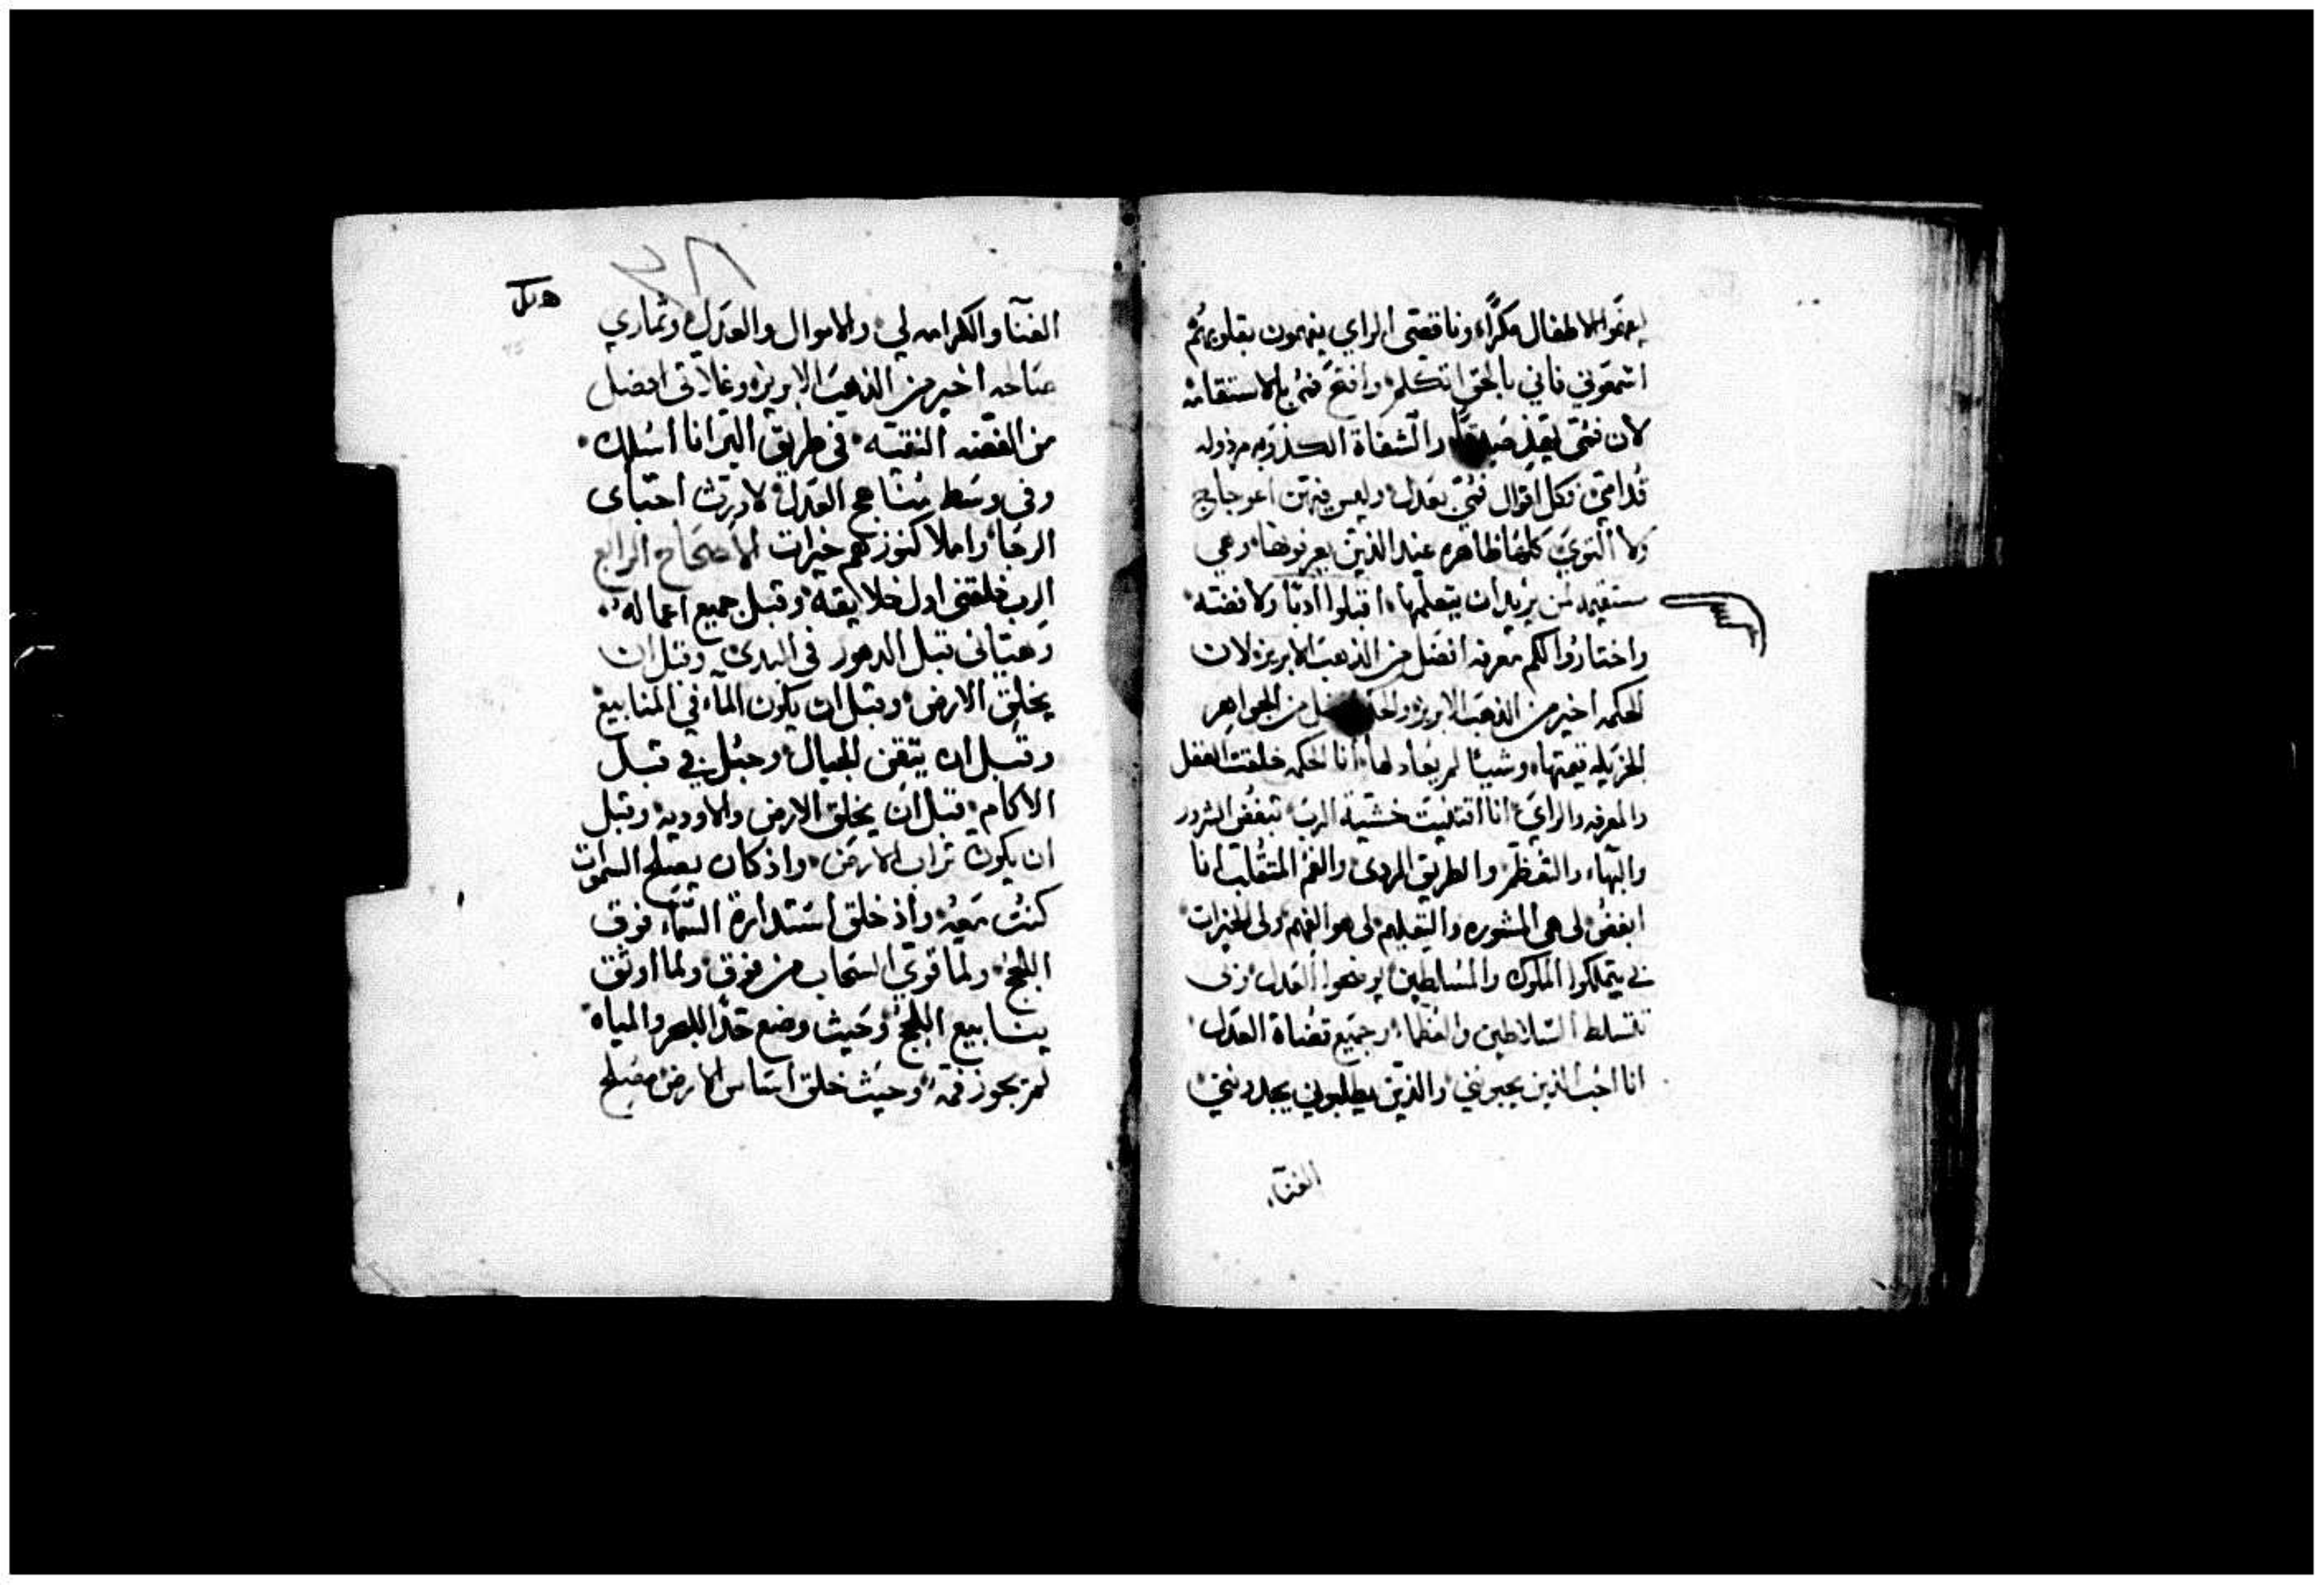 ليفهموا الاطفال مكرًا، وناقصى الراي يفهمون بقلوبهم
اسمعوني فاني بالحق اتكلم، وافتح فمي بالاستقامه
لان فمى يهذ والشفاة الكذوبه مرذوله
قدامي، فكل اقوال فمي بعدل، وليس فيهن اعوجاج
ولا التوي، كلها ظاهره عند الذين يعرفونها، وهي
مستقيمه لمن يريد ان يتعلمها، اقبلوا ادبًا ولا فضه،
واختاروا لكم معرفه افضل من الذهب الابريز، لان
الحكمه اخير من الذهب الابريز، من الجواهر
الجزيله قيمتها، وشيئا لم يعادلها، انا الحكمه خلقت العقل
والمعرفه والراي، انا اقتنيت خشية الرب، تبغض الشرور
والبهاء، والتعظم، والطريق الردي، والفم المتقلب انا
ابغض، لى هى المشوره، والتعليم، لى هو الفهم، ولى الخيرات
بي يتملكوا الملوك، والمسلطين يرضعوا العدل، وبى
تتسلط السلاطين والعظماء، وجميع قضاة العدل،
انا احب الذين يحبونني، والذين يطلبوني يجدونني،
الغناء
الغنآ والكرامه لي، والاموال والعدل، وثماري
صالحه اخير من الذهب الابريز، وغلاتى افضل
من الفضه النقيه، فى طريق البر انا اسلك،
وفى وسط مناهج العدل، لاورث احباى
الرجا، واملا كنوزهم خيرات الاصحاح الرابع
الرب خلقنى اول خلايقه، وقبل جميع اعماله،
وهيانى قبل الدهور فى البدى، وقبل ان
يخلق الارض، وقبل ان يكون المآء في المنابيع
وقبل ان يتقن الجبال، وحبل بي قبل
الاكام، قبل ان يخلق الارض والاوديه، وقبل
ان يكون تراب الارض، واذ كان يصلح السموات
كنت معه، واذ خلق استدارة السمآء فوق
اللجج، ولما قوي السحاب من فوق، ولما اوثق
ينابيع اللجج، وحيث وضع حدًا للبحر والمياه
لم تجوز فمه، وحيث خلق اساس الارض، مصلح